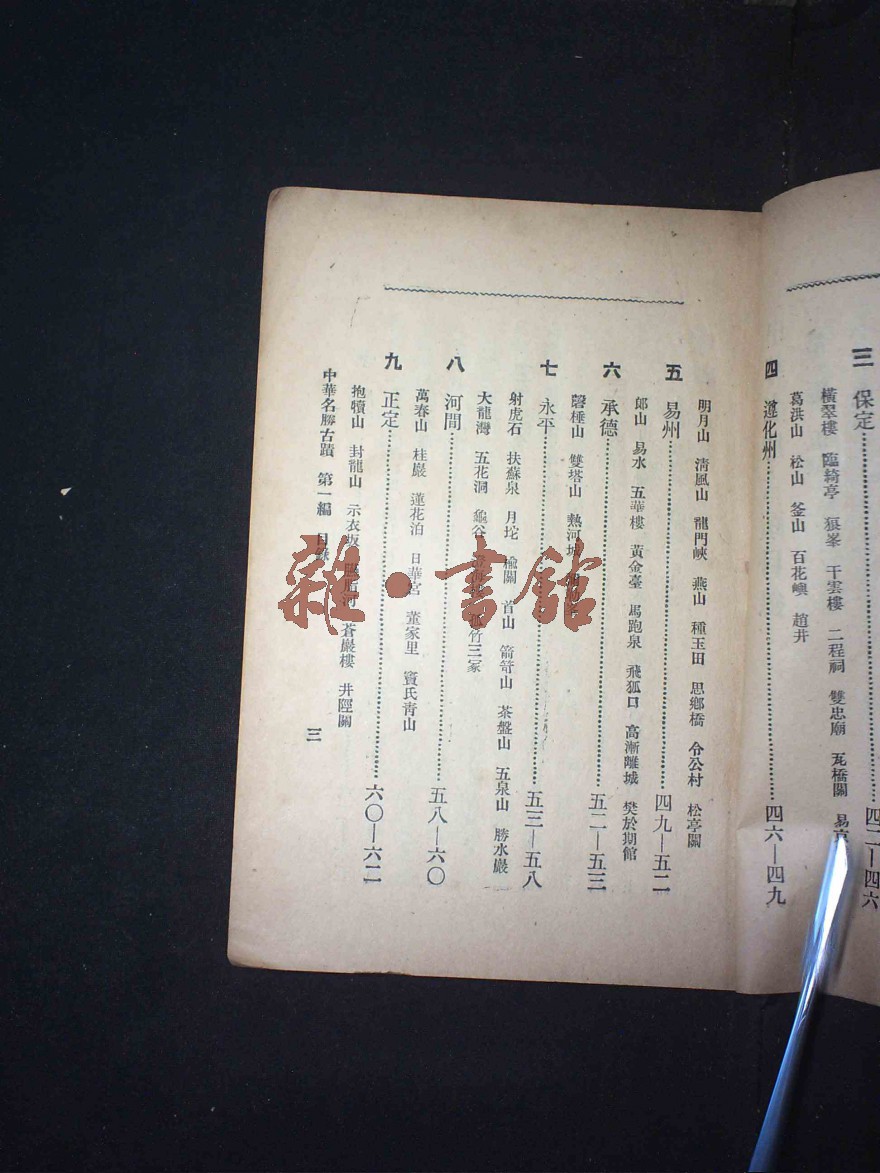 三 保定……四二—四六
橫翠樓 臨綺亭 狼峯 干雲樓 二程祠 雙忠廟 瓦橋關 易
葛洪山 松山 釜山 百花嶼 趙井
四 遵化州……四六—四九
明月山 清風山 龍門峽 燕山 種玉田 思鄉橋 令公村 松亭關
五 易州……四九—五二
郞山 易水 五華樓 黃金臺 馬跑泉 飛狐口 高漸離城 樊於期館
六 承德……五二—五三
磬棰山 雙塔山 熱河城
七 永平……五三—五八
射虎石 扶蘇泉 月坨 楡關 首山 箭笴山 茶盤山 五泉山 勝水巖 一
大龍灣 五花洞 龜谷 孤竹三冢
八 河間……五八—六〇
萬春山 桂巖 蓮花泊 日華宮 董家里 竇氏靑山
九 正定……六〇—六二
抱犢山 封龍山 示衣坂 蒼巖樓 井陘關
中華名勝古蹟 第一編 目錄 三
雜·書館